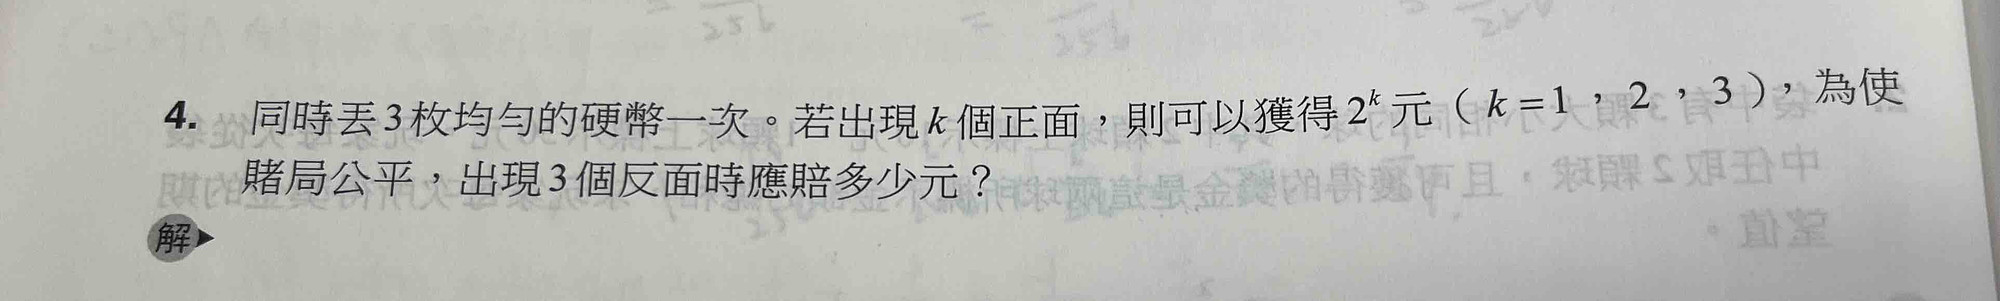 4. 同時丟3枚均勻的硬幣一次。若出現k個正面，則可以獲得2^k元（k=1，2，3），為使
賭局公平，出現3個反面時應賠多少元？
解▶